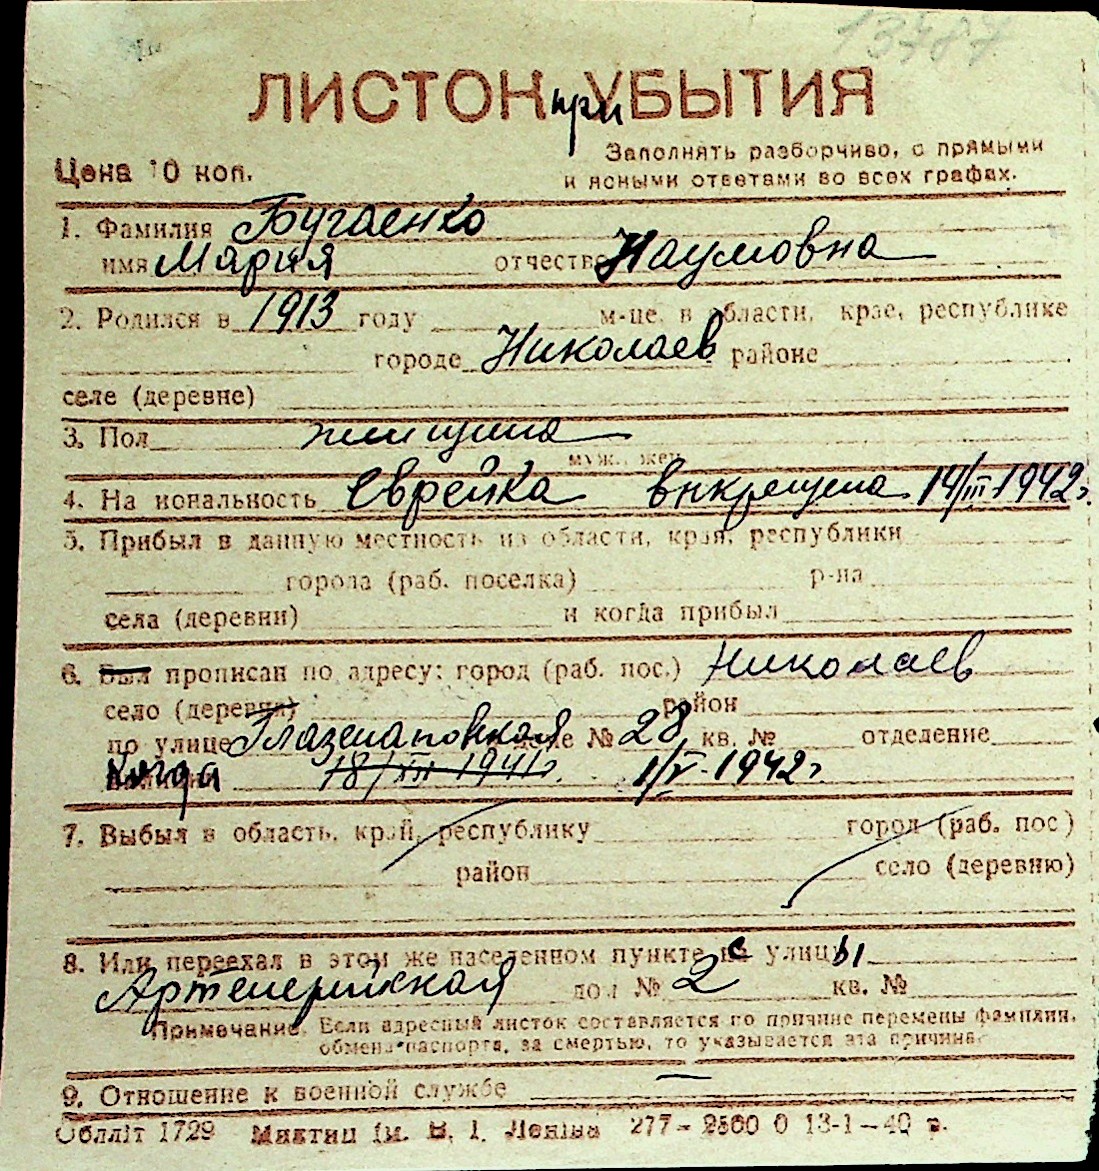 13787
ЛИСТОК при УБЫТИЯ
Заполнять разборчиво, с прямыми
Цена 10 коп.
и ясными ответами во всех графах.
1. Фамилия Бугаенко
имя Мария отчество Наумовна
2. Родился в 1913 году м-це, в области, крае, республике
городе Николаев районе
селе (деревне)
3. Пол женщина
муж., жен.
4. На иональность Еврейка выкрещена 14/III 1942 г.
5. Прибыл в данную местность из области, края, республики
города (раб. поселка) р-на
села (деревни) и когда прибыл
6. Был прописан по адресу: город (раб. пос.) Николаев
село (деревня) район
по улице Глазенаповская № 28 кв. № отделение
Когда 18/XII 1941 г. 1/V-1942 г
7. Выбыл в область, край, республику город (раб. пос)
район село (деревню)
8. Или переехал в этом же населенном пункте с улицы
Артилерийская дом № 2 кв. №
Примечание. Если адресный листок составляется по причине перемены фамилии,
обмена паспорта, за смертью, то указывается эта причина.
9. Отношение к военной службе —
Обллiт 1729 Миктип iм. В. I. Ленiна 277 – 2500 0 13-1–40 р.